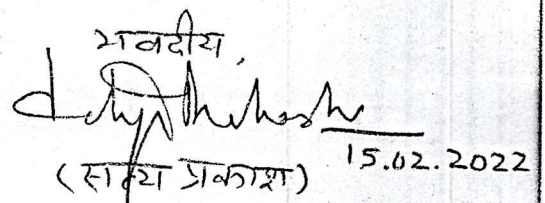 भवदीय,
15.02.2022
(सत्य प्रकाश)